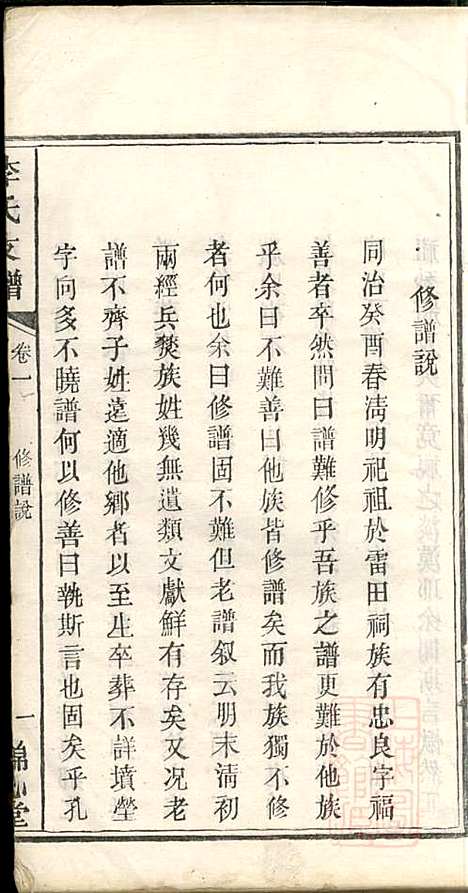 修譜說
同治癸酉春淸明祀祖於雷田祠族有忠良字福
善者卒然問曰譜難修乎吾族之譜更難於他族
乎余曰不難善曰他族皆修譜矣而我族獨不修
者何也余曰修譜固不難但老譜叙云明末清初
兩經兵燹族姓幾無遺類文獻鮮有存矣又况老
譜不齊子姓遠適他鄉者以至生卒葬不詳墳塋
字向多不曉譜何以修善曰執斯言也固矣乎孔
李氏支譜
卷一
修譜說
一
堂